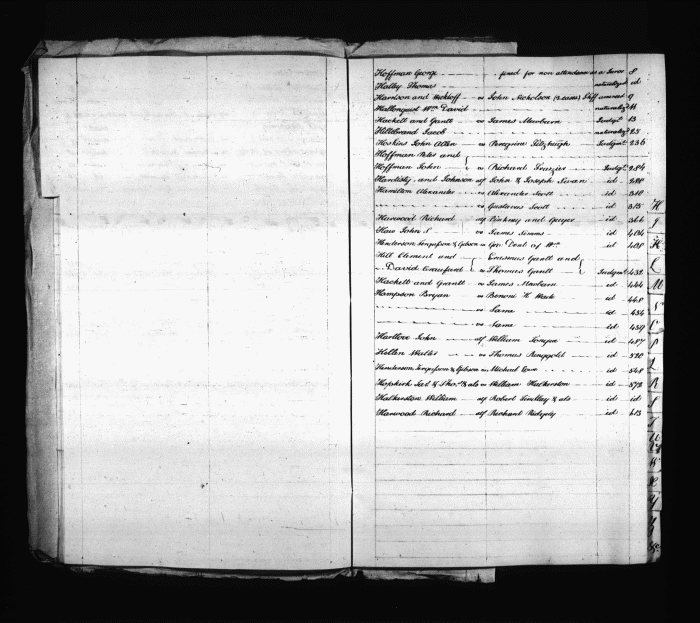 Hoffman George - fined for non attendance as a Juror 8
Kalby Thomas naturalized id
Harrison and Nickloff vs John Nicholson (2 cases) Diff amount 9
Hallenquest Wm. David naturalized 11
Hackett and Gantt vs James Marbarn Judgt. 13
Hillebrand Jacob naturalized 25
Hoskins John Allen vs Peregrine Fitzhugh Judgmt. 236
Hoffman Peter and
Hoffman John vs Richard Frazier Judgt. 284
Hardisty and Johnson John & Joseph Swan id 288
Hamilton Alexander vs Alexander Scott id 310
vs Gustavus Scott id 315
Harwood Richard Pinkney and Guyer id 366
Haw John S vs James Simms id 404
Henderson Ferguson & Gibson vs Geo. Dent of Wm. id 408
Hill Clement and Erasmus Gantt and
David Craufurd vs Thomas Gantt Judgmt. 438
Hackett and Grantt vs James Marbarn id 444
Hampson Bryan vs Benoni H Wade id 448
vs Same id 454
vs Same id 459
Hartlove John William id 487
Hellen Walter vs Thomas Ringgold id 520
Henderson Ferguson & Gibson vs Michael Lowe id 548
Hopkirk Jas. & Tho. & als vs William Halkerston id 572
Halkerston William Robert Lindsey & als id id
Harwood Richard Richard Ridgely id 613
H